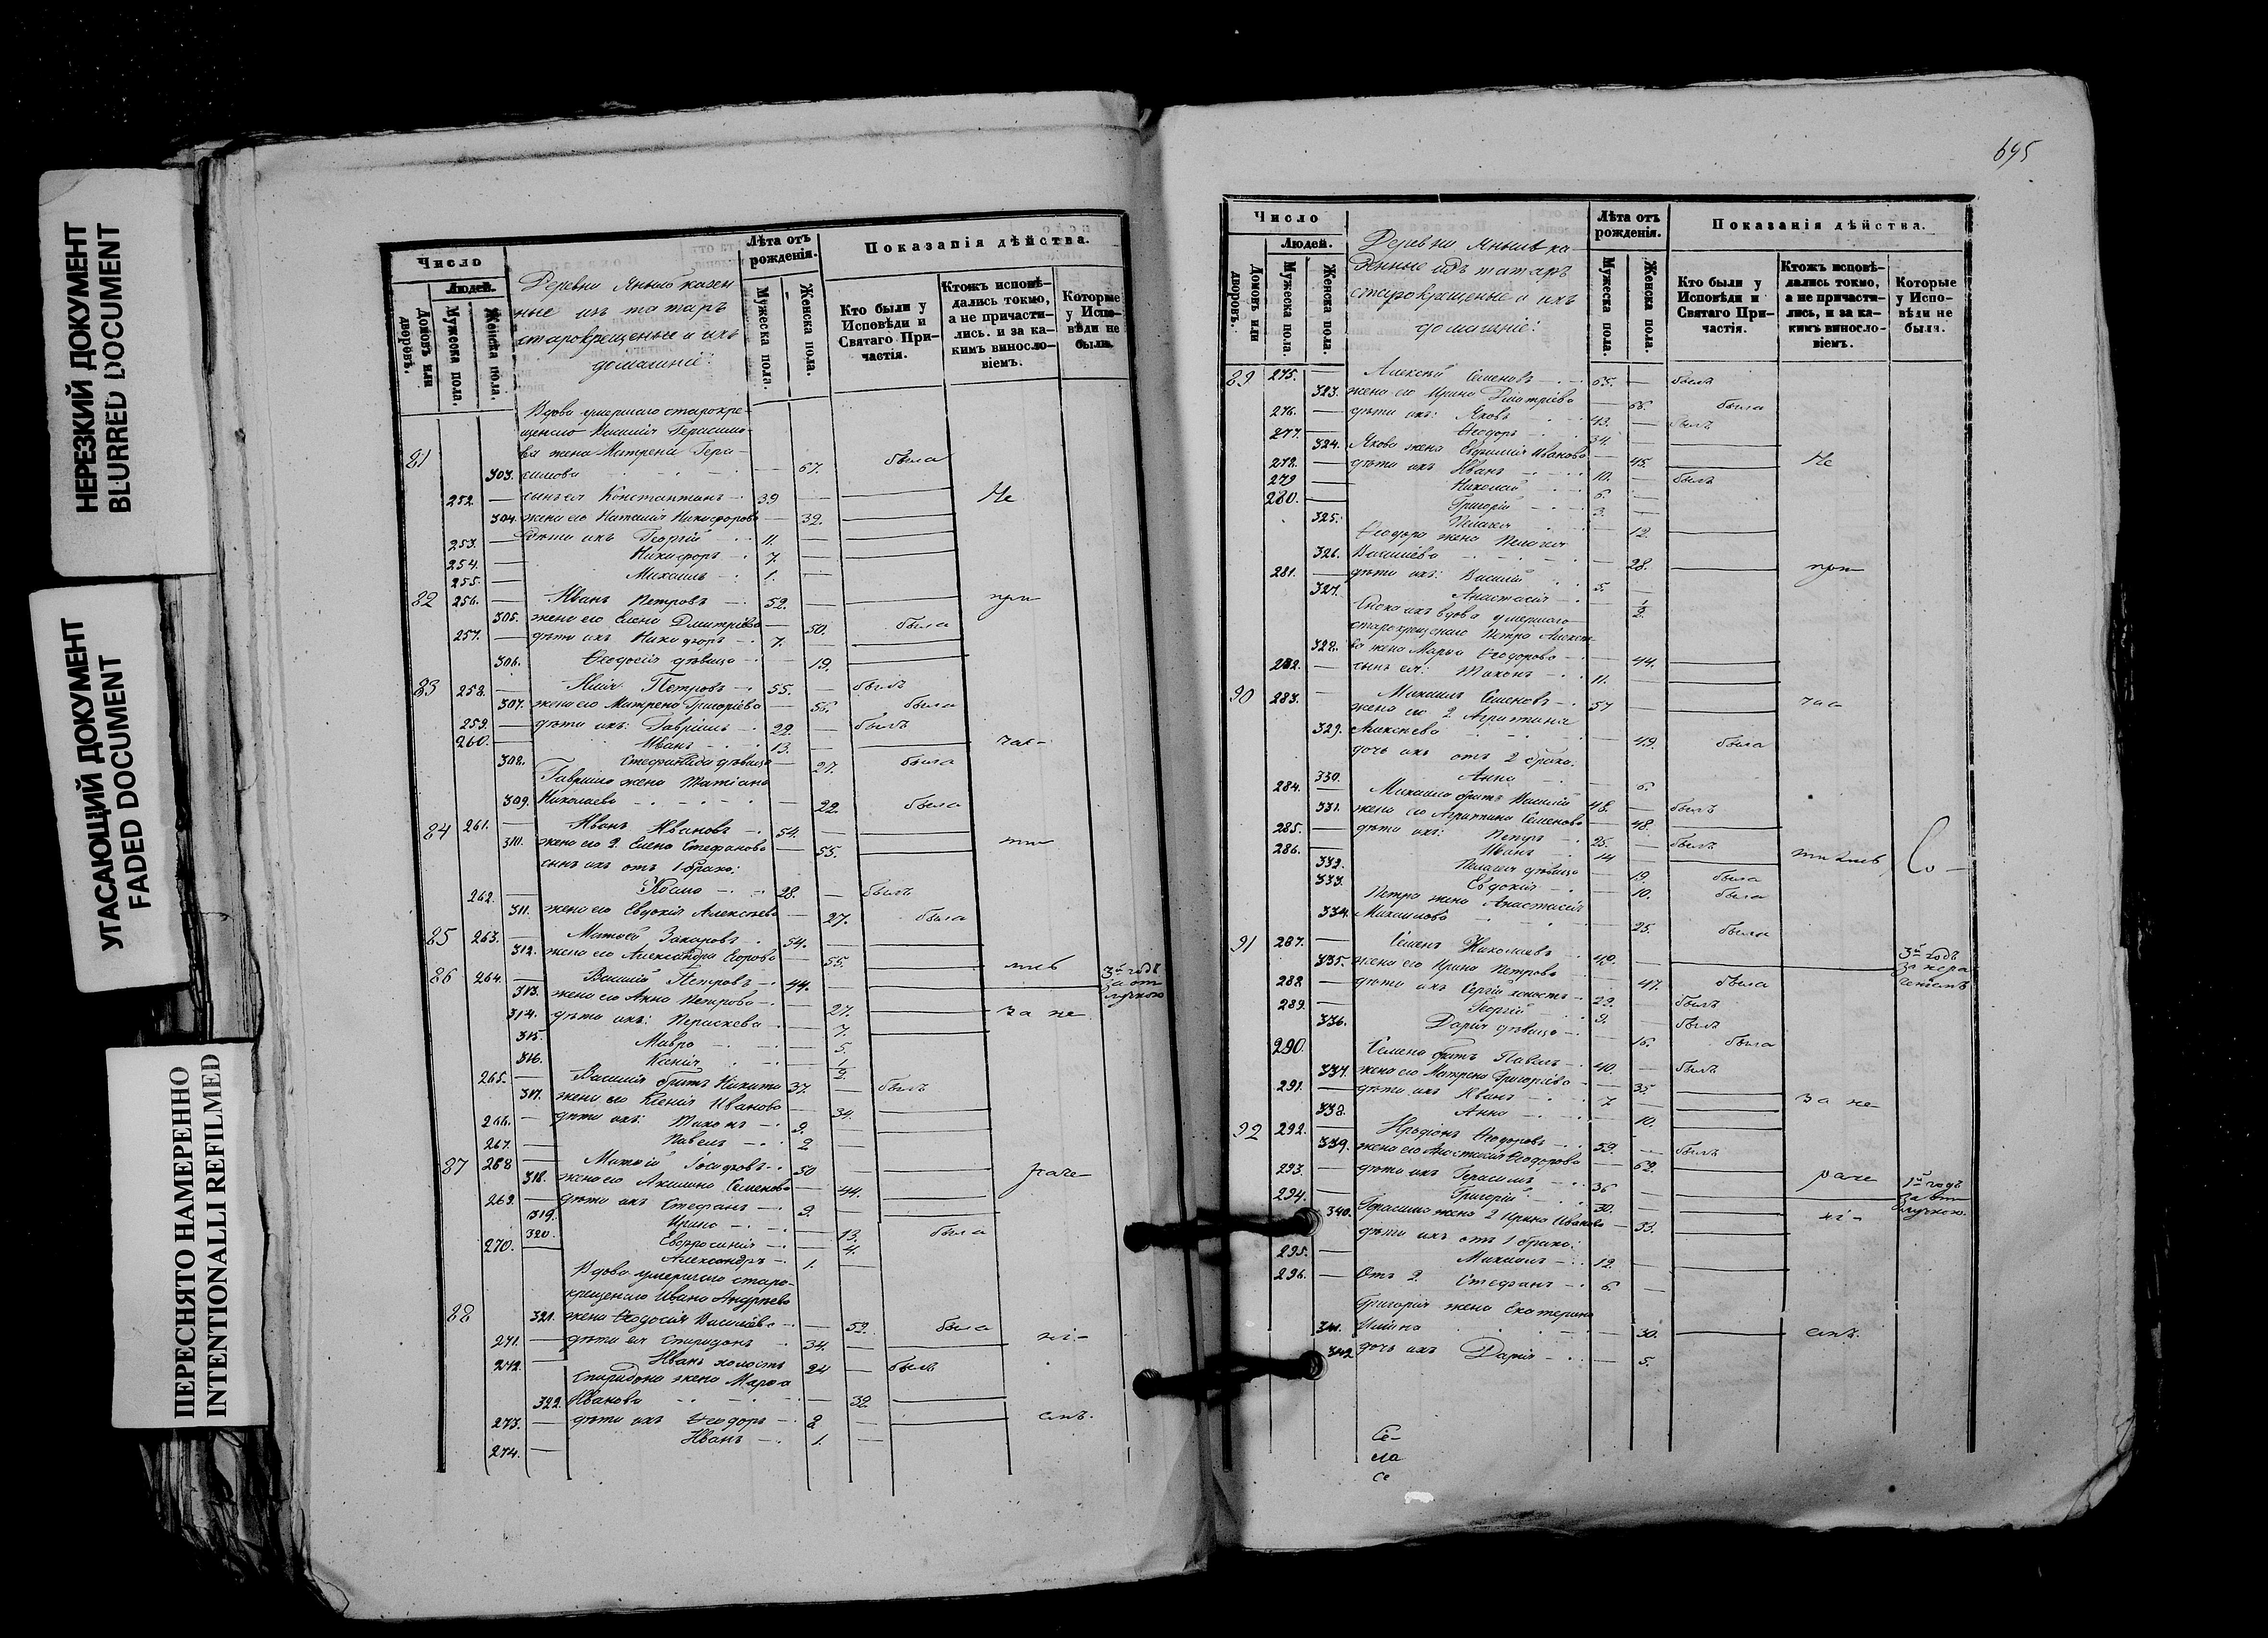 НЕРЕЗКИЙ ДОКУМЕНТ
BLURRED DOCUMENT
УГАСАЮЩИЙ ДОКУМЕНТ
FADED DOCUMENT
ПЕРЕСНЯТО НАМЕРЕННО
INTENTIONALLI REFILMED
Число
Людей.
Домовъ или дворовъ.
Мужеска пола.
Женска пола.
Деревни Янышъ казен
ные изъ татаръ
старокрещеные и ихъ
домашніе:
Лѣта отъ рожденія.
Мужеска пола.
Женска пола.
Показанія дѣйства.
Кто были у Исповѣди и Святаго Причастія.
Ктожъ исповѣдались токмо, а не причастились. и за какимъ винословіемъ.
Которые у Исповѣди не были.
Вдова умершаго старокре-
щенаго Василія Герасимо-
81 ва жена Матрена Гера-
303. симова 67. была
252. — сынъ ея Константинъ 39 — Не
304. жена его Наталія Никифорова — 32.
253. — дѣти ихъ Георгій 11. —
254. — Никифоръ 7.
255. — Михаилъ 1. —
82 256. — Иванъ Петровъ 52. — при
305. жена его Елена Дмитріева — 50. была
257. — дѣти ихъ Никифоръ 7. —
306. Ѳеодосія дѣвица — 19.
83 258. — Илія Петровъ 55. — былъ
307. жена его Матрена Григоріева — 56. была
259. — дѣти ихъ: Гавріилъ 22. — былъ
260. — Иванъ 13. — час-
308. Стефанида дѣвица — 27. была
Гавріила жена Татіана
309. Николаева — 22. была
84 261. — Иванъ Ивановъ 54. —
310. жена его 2. Елена Стефанова — 55. ти
сынъ ихъ отъ 1 брака:
262. — Косма 28. — былъ
311. жена его Евдокія Алексѣева — 27. была
85 263. — Матѳей Захаровъ 54. —
312. жена его Александра Егорова — 55. лись
86 264. — Василій Петровъ 44. — 3й годъ за отлучкою
313. жена его Анна Петрова 27. за не
314. дѣти ихъ: Параскева — 7.
315. Мавра — 5.
316. Ксенія — 1/2.
265. — Василія братъ Никита 37. — былъ
317. жена его Ксенія Иванова — 34.
266. — дѣти ихъ: Тихонъ 9. —
267. — Павелъ 2
87 268 — Матѳій Іосифовъ 50 — раче-
318. жена его Акилина Семенова — 44.
269. — дѣти ихъ Стефанъ 9. —
319. Ирина — 13. была
320. Евфросинія — 4.
270. — Александръ 1. —
Вдова умершаго старо-
крещенаго Ивана Андреева
88 321. жена Ѳеодосія Васильева — 52. была
271. — дѣти ея Спиридонъ 34. — ні-
272. — Иванъ холостъ 24 — былъ
Спиридона жена Марѳа
322. Иванова — 32.
273. — дѣти ихъ Ѳеодоръ 2 — емъ.
274. — Иванъ 1. —
695
Число
Людей.
Домовъ или дворовъ.
Мужеска пола.
Женска пола.
Деревни Янышъ ка
зенные изъ татаръ
старокрещеные и ихъ
домашніе:
Лѣта отъ рожденія.
Мужеска пола.
Женска пола.
Показанія дѣйства.
Кто были у Исповѣди и Святаго Причастія.
Ктожъ исповѣдались токмо, а не причастились, и за какимъ винословіемъ.
Которые у Исповѣди не были.
89 275. — Алексѣй Семеновъ 65. — былъ
323. жена его Ирина Дмитріева — 66. была
276. — дѣти ихъ: Яковъ 43. — былъ
277. — Ѳеодоръ 34. —
324. Якова жена Евфимія Иванова — 45. Не
278. — дѣти ихъ Иванъ 10. — былъ
279 — Николай 6. —
280. — Григорій 3. —
325. Пелагія — 12.
Ѳеодора жена Пелагія
326. Васильева — 28. при
281. — дѣти ихъ: Василій 5. —
327. Анастасія — 1/2.
Сноха ихъ вдова умершаго
старокрещенаго Петра Алексѣе
328. ва жена Марѳа Ѳеодорова — 44.
282. — сынъ ея: Тихонъ 11. —
90 283. — Михаилъ Семеновъ 57 — час
жена его 2 Агриппина
329. Алексѣева 49. была
дочь ихъ отъ 2 брака.
330. Анна — 6.
284. — Михаила братъ Василій 48. — былъ
331. жена его Агриппина Семенова — 48.
285. — дѣти ихъ: Петръ 25. — былъ
286. — Иванъ 14 — тились Со-
332. Пелагія дѣвица — 19. была
333. Евдокія — 10. была
Петра жена Анастасія
334. Михаилова — 25. была
91 287. — Семенъ Николаевъ 49. — 3й годъ за нераченіемъ
335. жена его Ирина Петрова — 47. была
288. — дѣти ихъ Сергій холостъ 22. — былъ
289. — Георгій 9. — былъ
336. Дарія дѣвица — 16. была
290. — Семена братъ Павелъ 40. — былъ
337. жена его Матрена Григоріева — 35.
291. — дѣти ихъ Иванъ 7 — за не-
338. Анна — 10.
92 292. — Иродіонъ Ѳеодоровъ 59. — былъ
339. жена его Анастасія Ѳеодорова — 62.
293. — дѣти ихъ Герасимъ 36 — раче
294. — Григорій 30. — 1й годъ за отлучкою.
340. Герасима жена 2 Ирина Иванова — 33. ні-
дѣти ихъ отъ 1 брака:
295. — Михаилъ 12. —
296. — Отъ 2. Стефанъ 6. —
Григорія жена Екатерина
341. Ильина — 30. емъ.
342 дочь ихъ Дарія — 5.
Се-
ла
Се